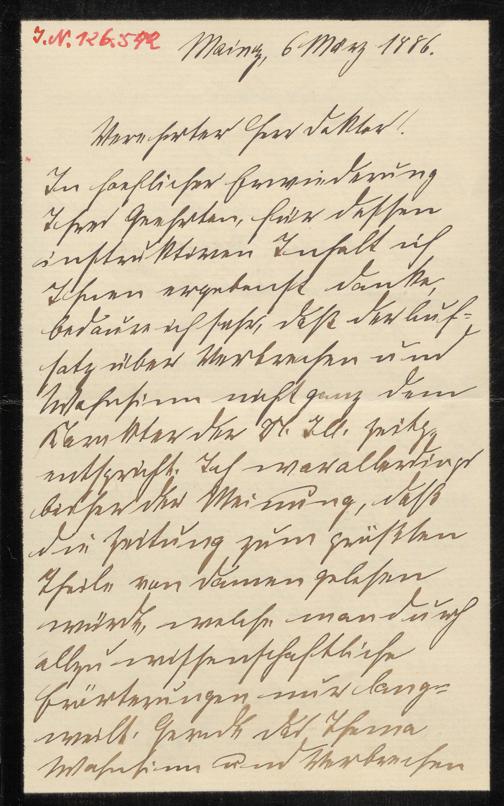 J.N. 126.592
Mainz, 6 März 1886.
Verehrter Herr Doktor!
In hoeflicher Erwiederung
Ihres Geehrten, für dessen
instruktiven Inhalt ich
Ihnen ergebenst danke,
bedaure ich sehr, daß der Auf=
satz über Verbrechen und
Wahnsinn nicht ganz dem
Karakter der N. Ill. Zeitg.
entspricht. Ich war allerdings
bisher der Meinung, daß
die Zeitung zum größten
Theile von Damen gelesen
würde, welche man durch
allzu wissenschaftliche
Erörterungen nur lang=
weilt. Gerade das Thema
Wahnsinn und Verbrechen